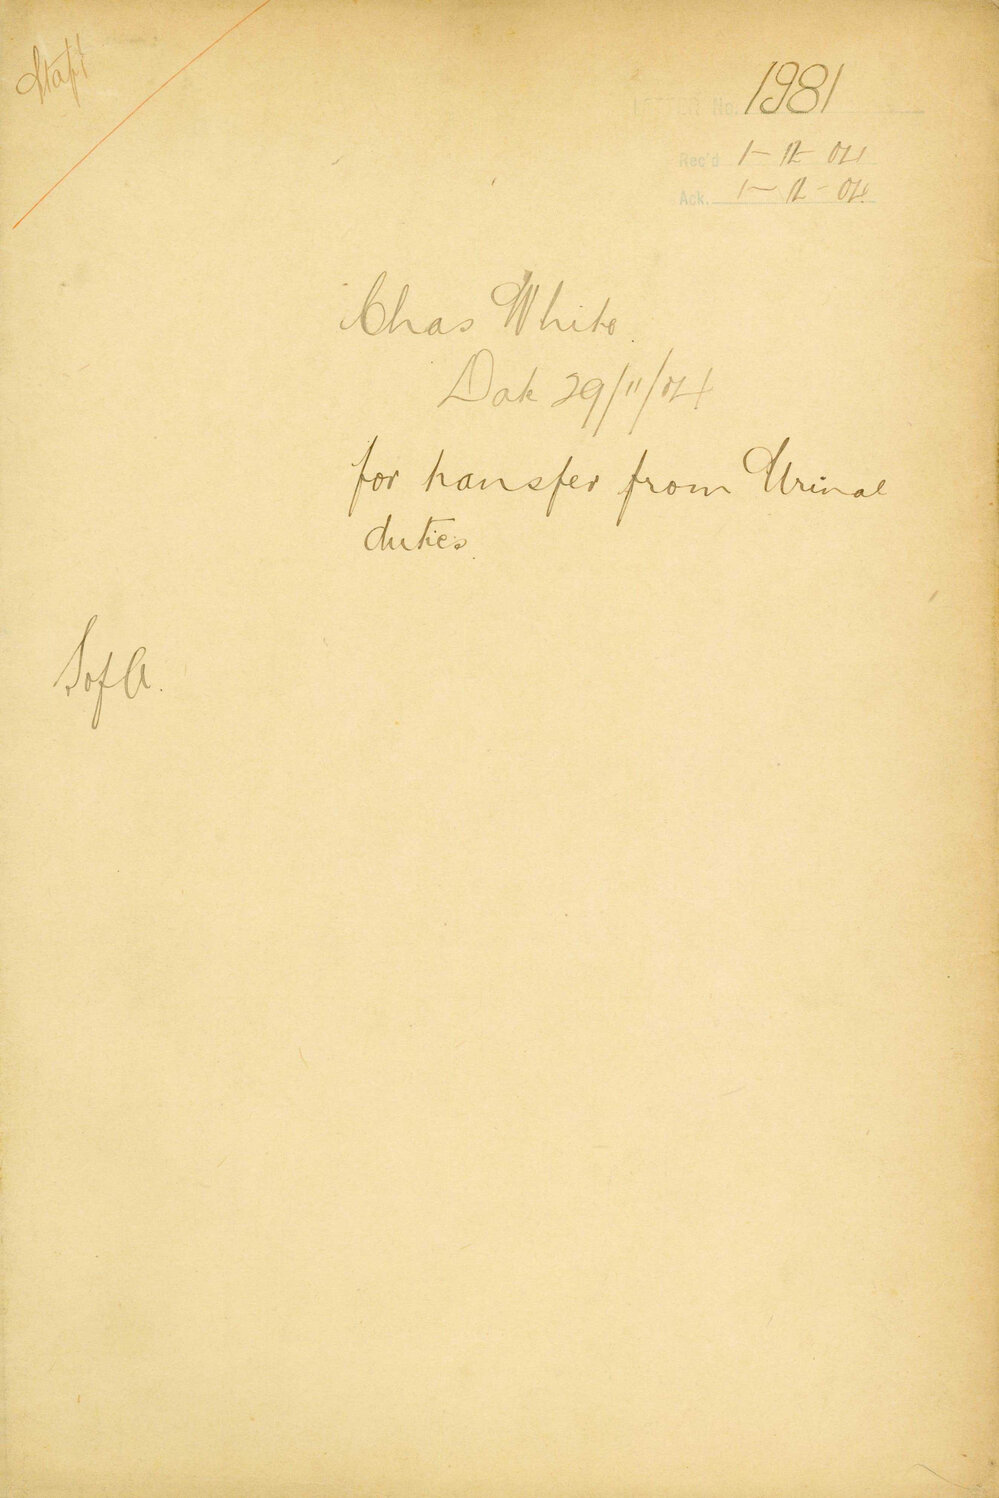 Staff
LETTER No. 1981
Rec'd 1-12-04
Ack. 1-12-04.
Chas White.
Date 29/11/04
for transfer from Urinal
duties.
S of A.